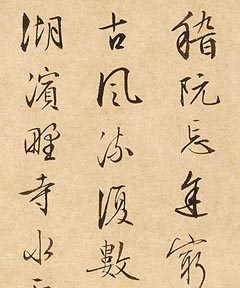 稽阮忘年窮
古風流須數
湖濱野寺水